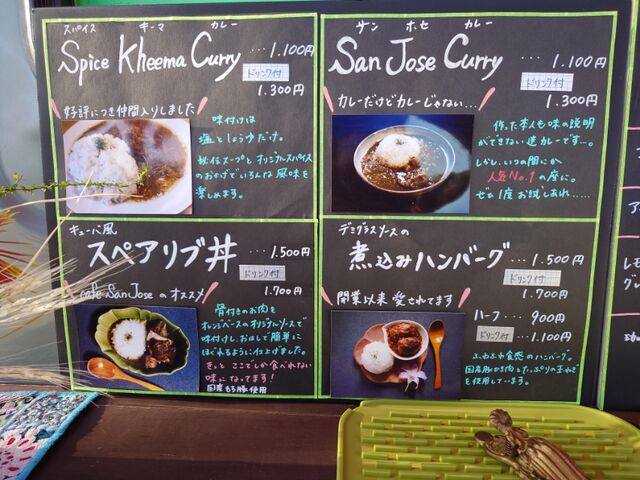 スパイス キーマ カレー
Spice Kheema Curry ･･･1.100円
ドリンク付
1.300円
好評につき仲間入りしました
味付けは
塩としょうゆだけ。
秘伝スープとオリジナルスパイス
のおかげでいろんな風味を
楽しめます。
サン ホセ カレー
San Jose Curry ･･･1.100円
ドリンク付
1.300円
カレーだけどカレーじゃない…
作った本人も味の説明
ができない迷カレーです…。
しかし、いつの間にか
人気No.1の座に。
ぜひ1度お試しあれ……
キューバ風
スペアリブ丼 ･･･1.500円
ドリンク付
1.700円
cafe San Joseのオススメ
骨付きのお肉を
オレンジベースのオリジナルソースで
味付けし、おはしで簡単に
ほぐれるように仕上げました。
きっとここでしか食べれない
味になってます!
国産もち豚使用
デミグラスソースの
煮込みハンバーグ ･･･1.500円
ドリンク付
1.700円
開業以来愛されてます
ハーフ･･･900円
ドリンク付･･･1.100円
ふわふわ食感のハンバーグ。
国産豚ひき肉とたっぷりの玉ねぎ
を使用しています。